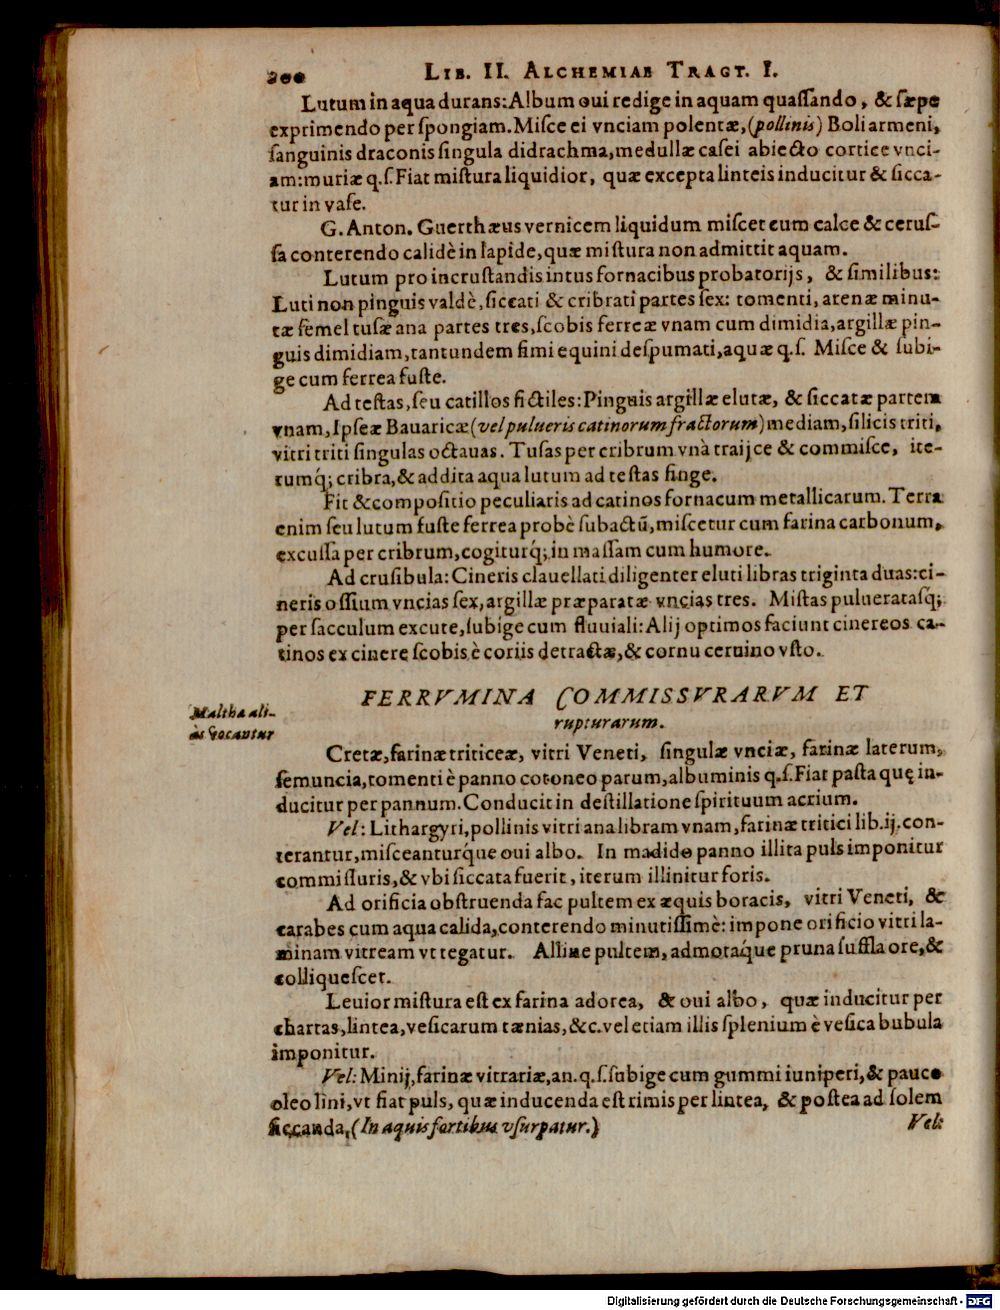 200 LIB. II. ALCHEMIAE TRACT. I.
Lutum in aqua durans: Album oui redige in aquam quaſſando, & ſæpe
exprimendo per ſpongiam. Miſce ei vnciam polentæ, (pollinis) Boli armeni,
ſanguinis draconis ſingula didrachma, medullæ caſei abiecto cortice vnci-
am: muriæ q.ſ. Fiat miſtura liquidior, quæ excepta linteis inducitur & ſicca-
tur in vaſe.
G. Anton. Guerthæus vernicem liquidum miſcet cum calce & ceruſ-
ſa conterendo calidè in lapide, quæ miſtura non admittit aquam.
Lutum pro incruſtandis intus fornacibus probatorijs, & ſimilibus:
Luti non pinguis valdè, ſiccati & cribrati partes ſex: tomenti, arenæ minu-
tæ ſemel tuſæ ana partes tres, ſcobis ferreæ vnam cum dimidia, argillæ pin-
guis dimidiam, tantundem fimi equini deſpumati, aquæ q.ſ. Miſce & ſubi-
ge cum ferrea fuſte.
Ad teſtas, ſeu catillos fictiles: Pinguis argillæ elutæ, & ſiccatæ partem
vnam, Ipſeæ Bauaricæ (vel pulueris catinorum fractorum) mediam, ſilicis triti,
vitri triti ſingulas octauas. Tuſas per cribrum vnà traijce & commiſce, ite-
rumq́; cribra, & addita aqua lutum ad teſtas finge.
Fit & compoſitio peculiaris ad catinos fornacum metallicarum. Terra
enim ſeu lutum fuſte ferrea probè ſubactū, miſcetur cum farina carbonum,
excuſſa per cribrum, cogiturq́; in maſſam cum humore.
Ad cruſibula: Cineris clauellati diligenter eluti libras triginta duas: ci-
neris oſſium vncias ſex, argillæ præparatæ vncias tres. Miſtas pulueratasq́;
per ſacculum excute, ſubige cum fluuiali: Alij optimos faciunt cinereos ca-
tinos ex cinere ſcobis è coriis detractæ, & cornu ceruino vſto.
FERRVMINA COMMISSVRARVM ET
rupturarum.
Maltha ali-
âs vocantur
Cretæ, farinæ triticeæ, vitri Veneti, ſingulæ vnciæ, farinæ laterum,
ſemuncia, tomenti è panno cotoneo parum, albuminis q.ſ. Fiat paſta quę in-
ducitur per pannum. Conducit in deſtillatione ſpirituum acrium.
Vel: Lithargyri, pollinis vitri ana libram vnam, farinæ tritici lib. ij. con-
terantur, miſceanturq́ue oui albo. In madido panno illita puls imponitur
commiſſuris, & vbi ſiccata fuerit, iterum illinitur foris.
Ad orificia obſtruenda fac pultem ex æquis boracis, vitri Veneti, &
carabes cum aqua calida, conterendo minutiſſimè: impone orificio vitri la-
minam vitream vt tegatur. Alline pultem, admotaq́ue pruna ſuffla ore, &
colliqueſcet.
Leuior miſtura eſt ex farina adorea, & oui albo, quæ inducitur per
chartas, lintea, veſicarum tænias, &c. vel etiam illis ſplenium è veſica bubula
imponitur.
Vel: Minij, farinæ vitrariæ, an. q.ſ. ſubige cum gummi iuniperi, & pauco
oleo lini, vt fiat puls, quæ inducenda eſt rimis per lintea, & poſtea ad ſolem
ſiccanda, (In aquis fortibus vſurpatur.)
Vel:
Digitalisierung gefördert durch die Deutsche Forschungsgemeinschaft - DFG